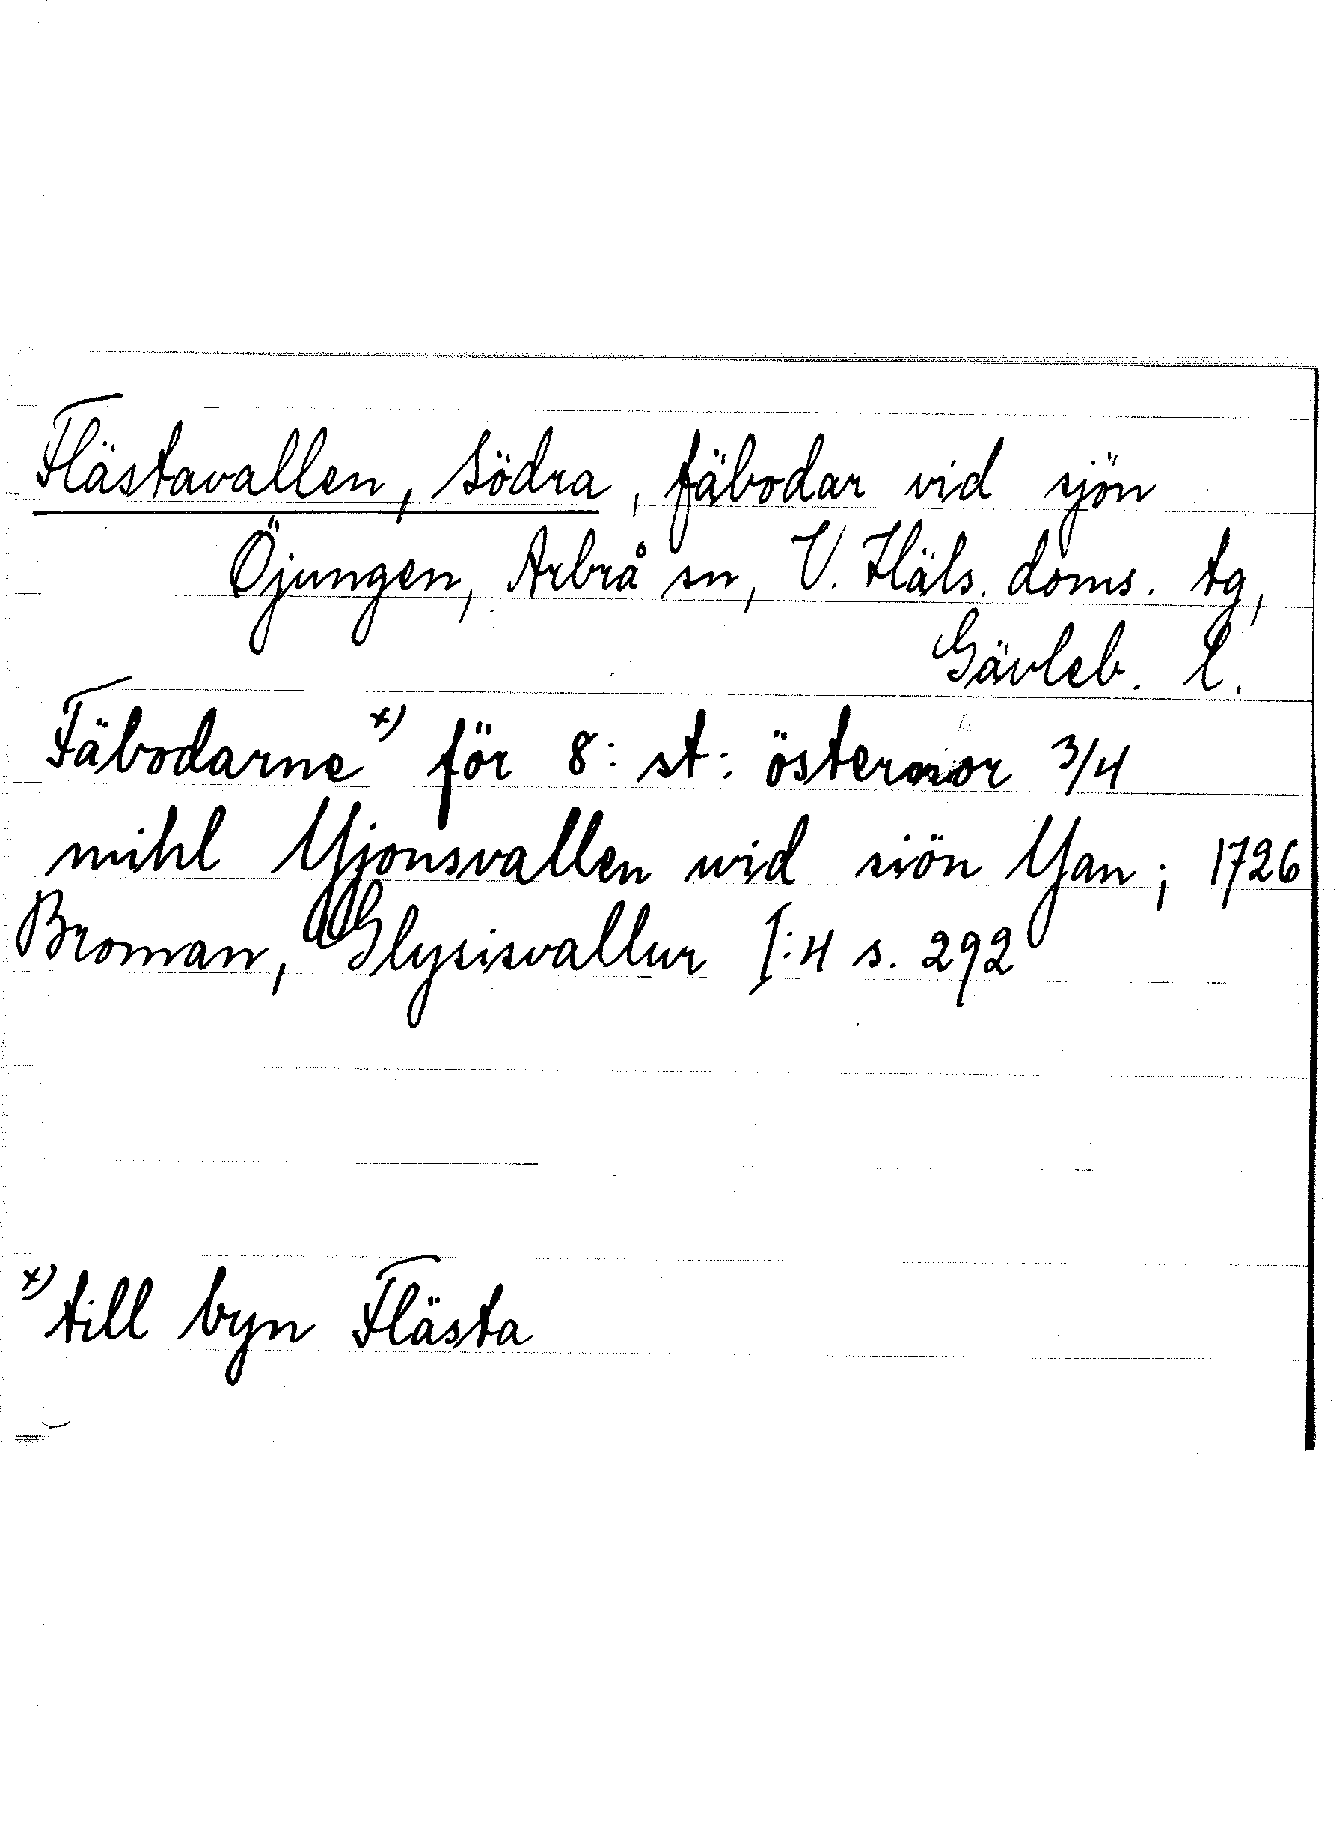 Flästavallen, Södra, fäbodar vid sjön
Öjungen, Arbrå sn, V. Häls. doms. tg,
Gävleb. l.
Fäbodarne x) för 8: st: östernor 3/4
mihl Yjonsvallen wid siön Yan; 1726
Broman, Glysisvallur I:4 s. 292
x) till byn Flästa